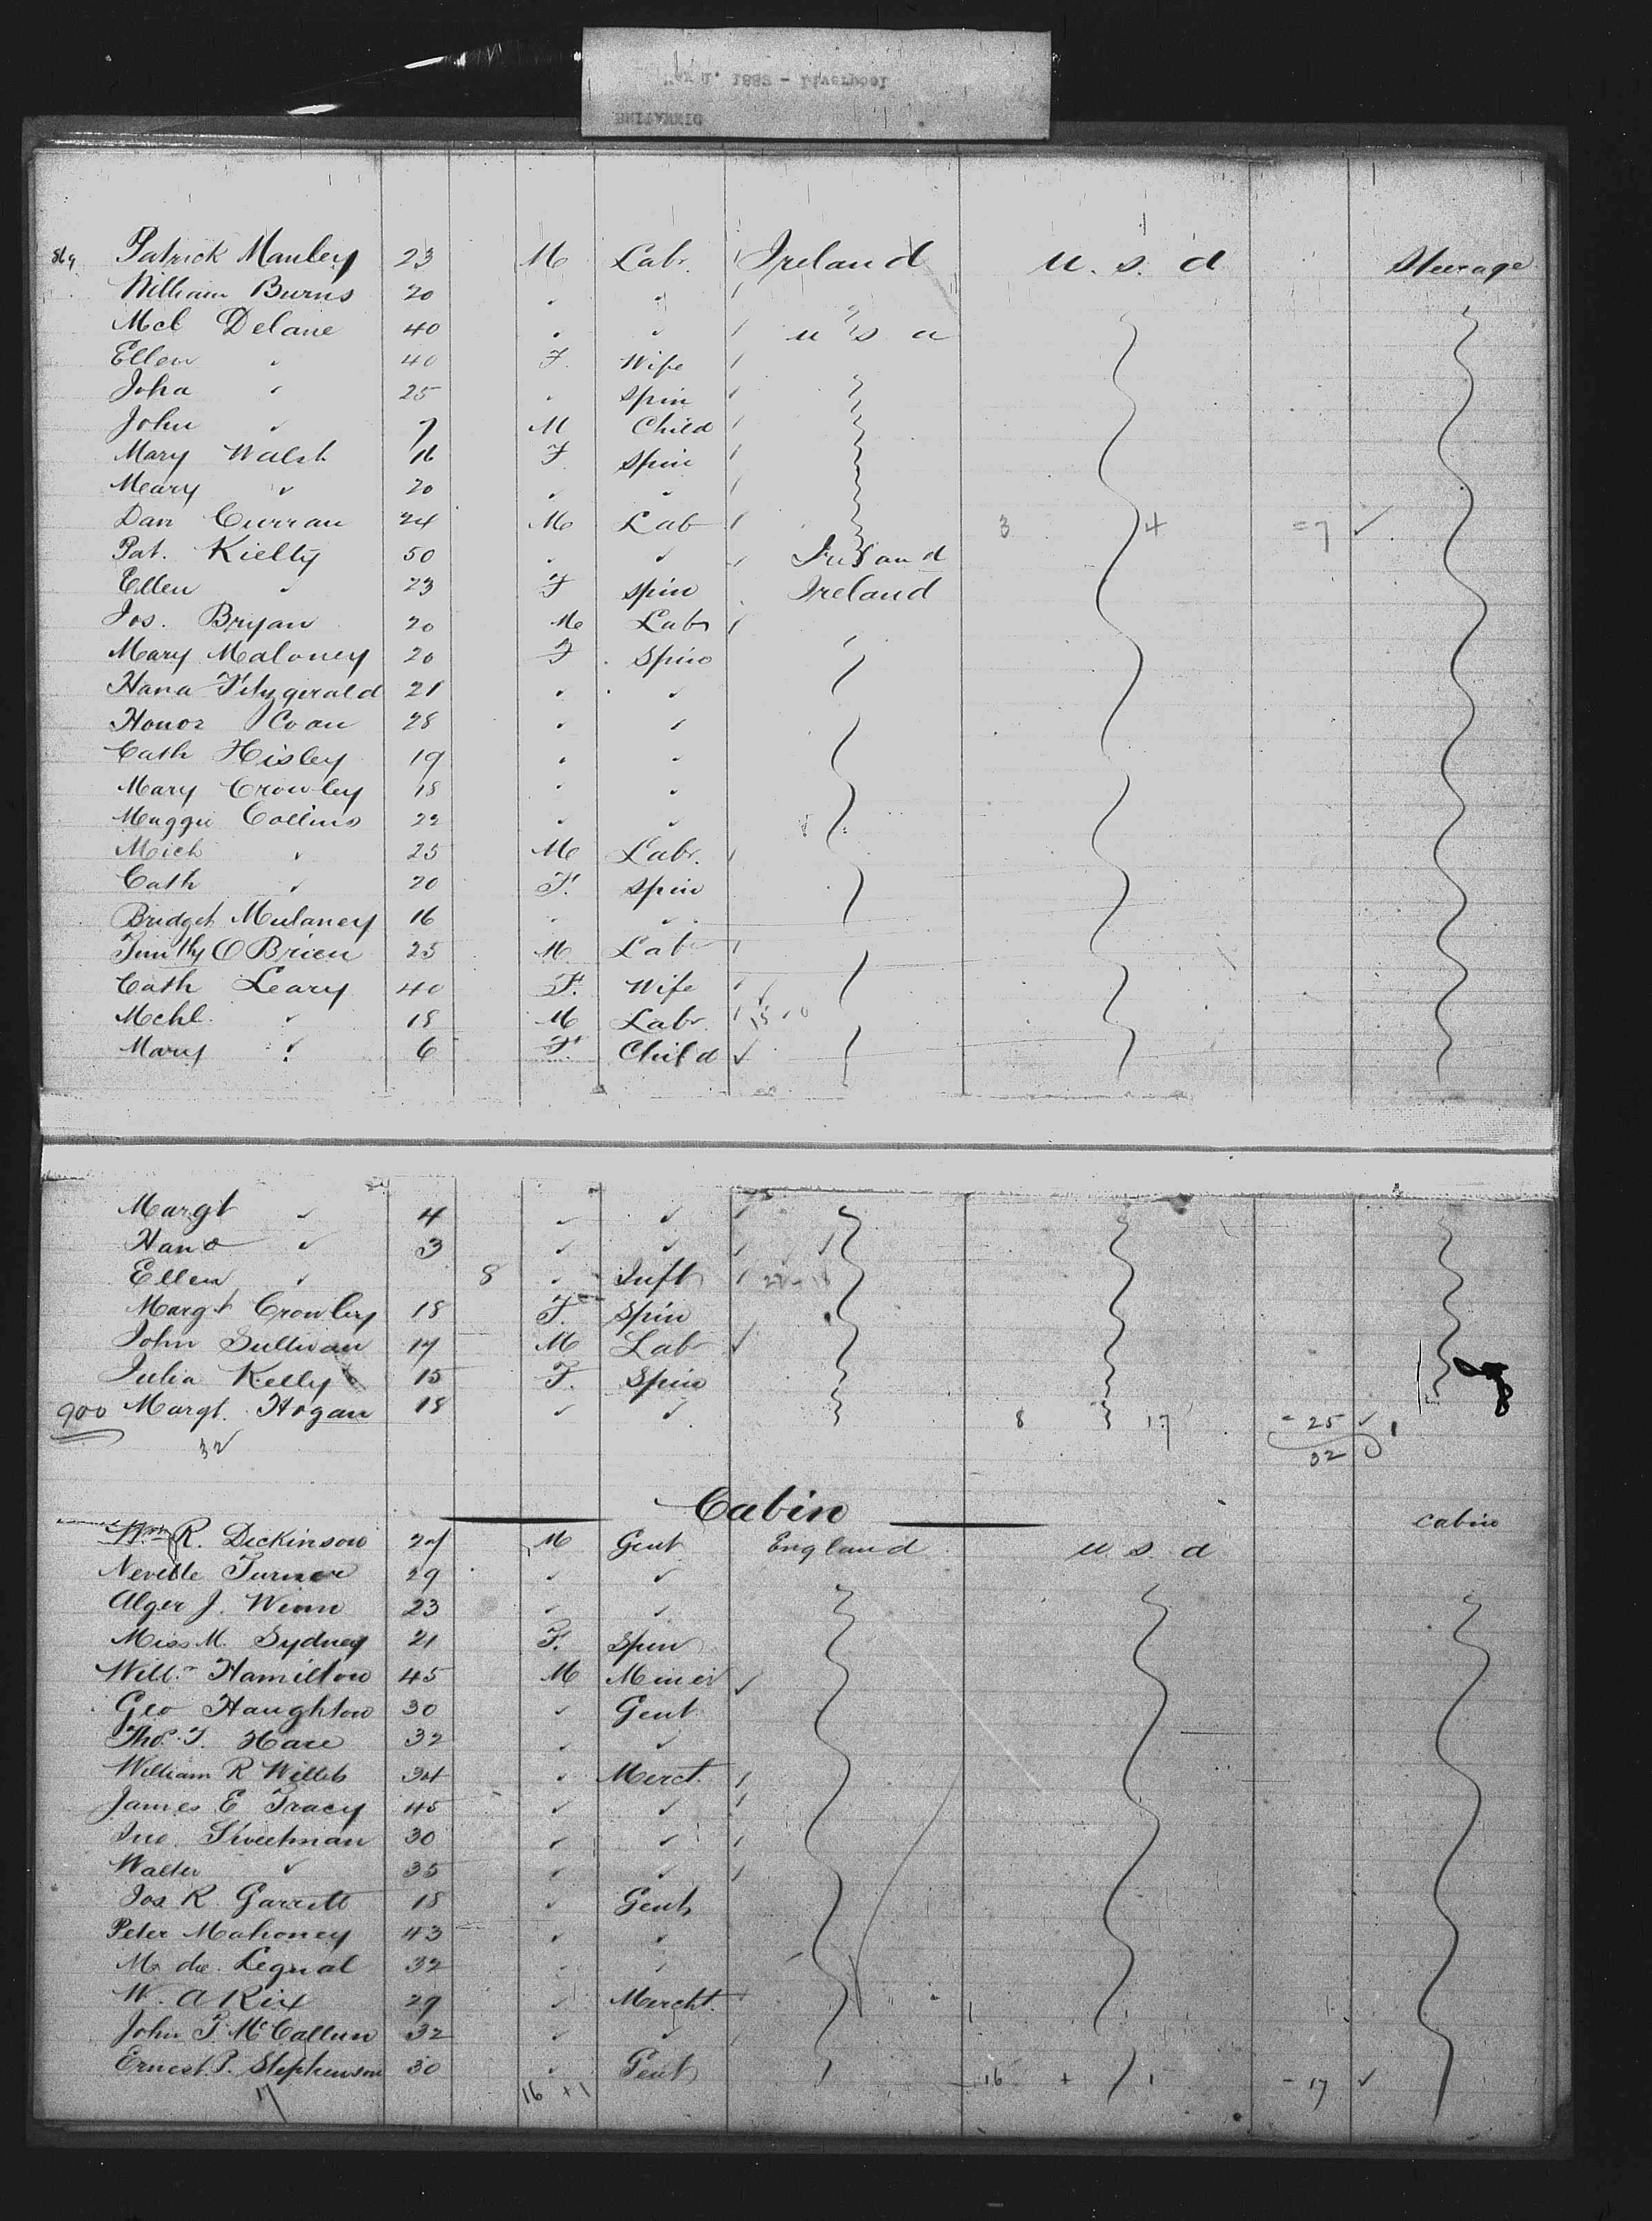 1882 - Liverpool
BRITANNIC
869 Patrick Manley 23 M Labr. Ireland U. S. A Steerage
William Burns 20 " "
Mcl Delane 40 " " U S A
Ellen " 40 F. Wife
Joha " 25 " Spin
John " 7 M Child
Mary Walsh 16 F Spin
Mary " 20 " "
Dan Curran 24 M Lab 3 4 = 7 ✓
Pat. Kielty 50 " " Ireland
Ellen " 23 F Spin Ireland
Jos. Bryan 20 M Labr
Mary Maloney 20 F. Spin
Hana Fitzgerald 21 " "
Honor Coan 28 " "
Cath Hisley 19 " "
Mary Crowley 18 " "
Maggie Collins 22 " "
Mich " 25 M Labr.
Cath " 20 F. Spin
Bridget Mulaney 16 " "
Timthy O Brien 25 M Labr
Cath Leary 40 F. Wife
Mchl. " 18 M Labr.
Mary " 6 F. Child ✓
Margt " 4 " "
Hana " 3 " "
Ellen " 8 " Inft
Margt Crowley 18 F. Spin
John Sullivan 19 M Labr ✓
Julia Kelly 15 F. Spin
900 Margt. Hogan 18 " " 8 17 = 25 ✓
32 32
Cabin
Wm R. Dickinson 27 M Gent England U. S. A Cabin
Neville Turner 29 " "
Alger J. Winn 23 " "
Miss M. Sydney 21 F. Spin
Willm Hamilton 45 M Miner ✓
Geo Haughton 30 " Gent
Thos. T. Hare 32 " "
William R Willets 34 " Merct.
James E Tracy 45 " "
Jno. Sweetman 30 " "
Walter " 35 " "
Jos R. Garrett 18 " Gent
Peter Mahoney 43 " "
M. de. Legual 32 " "
W. A Rix 29 " Mercht.
John T. McCallum 32 " "
Ernest. P. Stephenson 30 " Gent
17 16 + 1 16 + 1 - 17 ✓